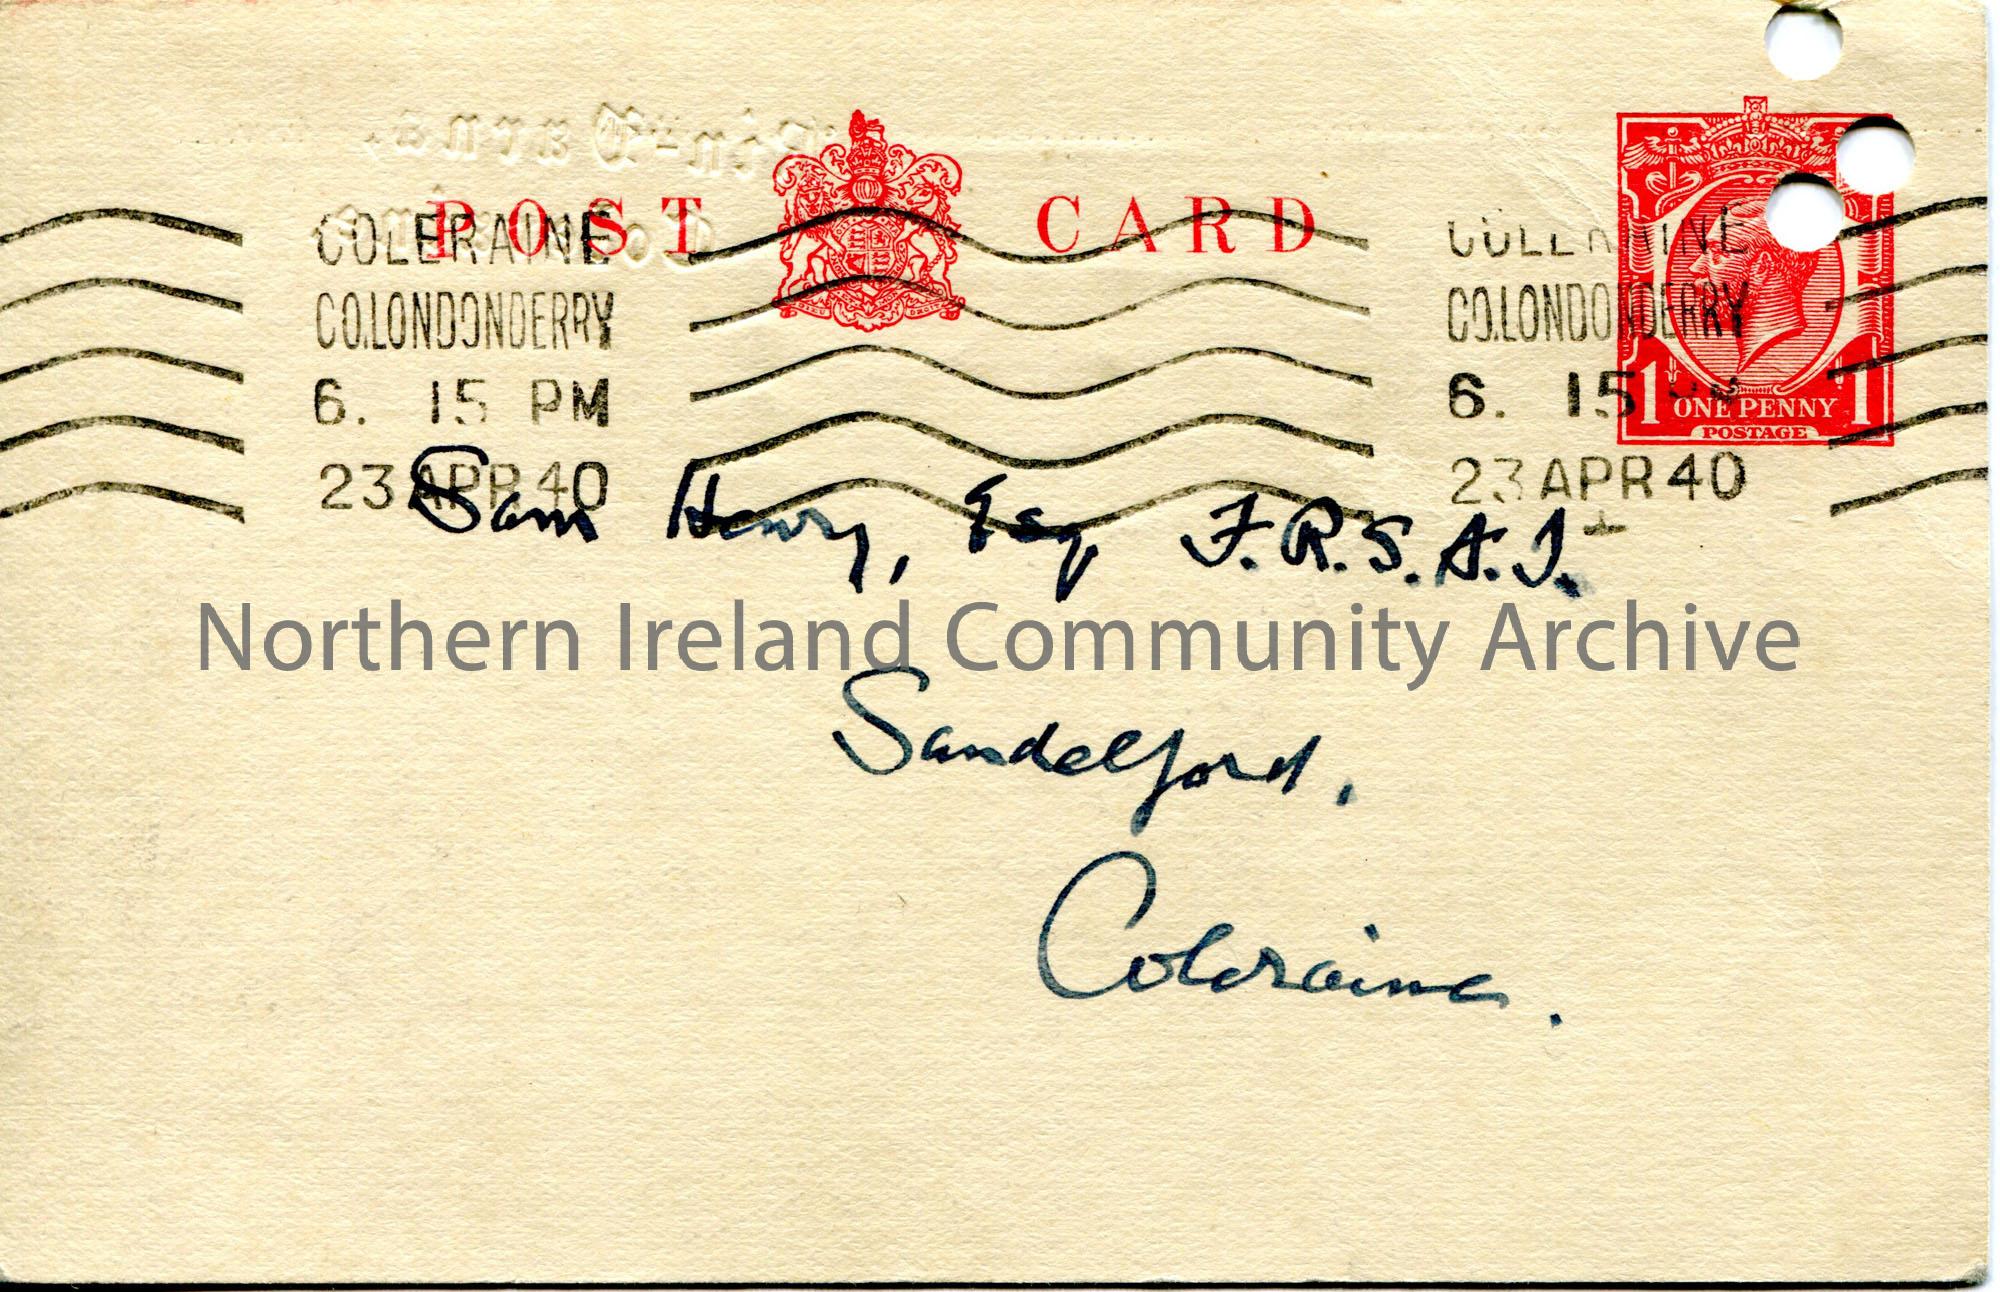 POST CARD
COLERAINE
CO.LONDONDERRY
6. 15 PM
23 APR 40
COLERAINE
CO.LONDONDERRY
6. 15 PM
23 APR 40
1 ONE PENNY 1
POSTAGE
Sam Henry, Esq, F.R.S.A.I.
Northern Ireland Community Archive
Sandelford,
Coleraine.